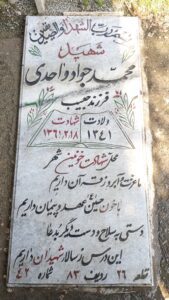 شهید
محمد جواد واحدی
فرزند حبیب
ولادت شهادت
۱۳۴۱ ۱۳۶۱٫۲٫۱۸
محل شهادت خرمین شهر
ما عزت و آبرو ز قرآن داریم
با خون حسین عهد و پیمان داریم
دستی به سلاح و دست دیگر به دعا
این درس ز سالار شهیدان داریم
قطعه ۲۶ ردیف ۸۳ شماره ۴۲